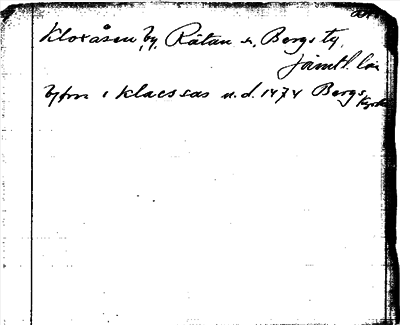 Kloxåsen, by, Rätan s., Bergs tg,
Jämtl. län
byn i Klaessas n.d. 1474 Bergs kyrka